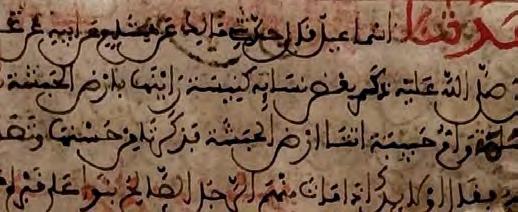 حدثنا اسماعيل قال حدثني مالك عن هشام عن ابيه عن عا
صلى الله عليه ذكر بعض نسايه كنيسة رايتها بارض الحبشة
سلمة وام حبيبة اتتا ارض الحبشة فذكرتا من حسنها وتصا
فقال اولايك اذا مات منهم الرجل الصالح بنوا على قبره